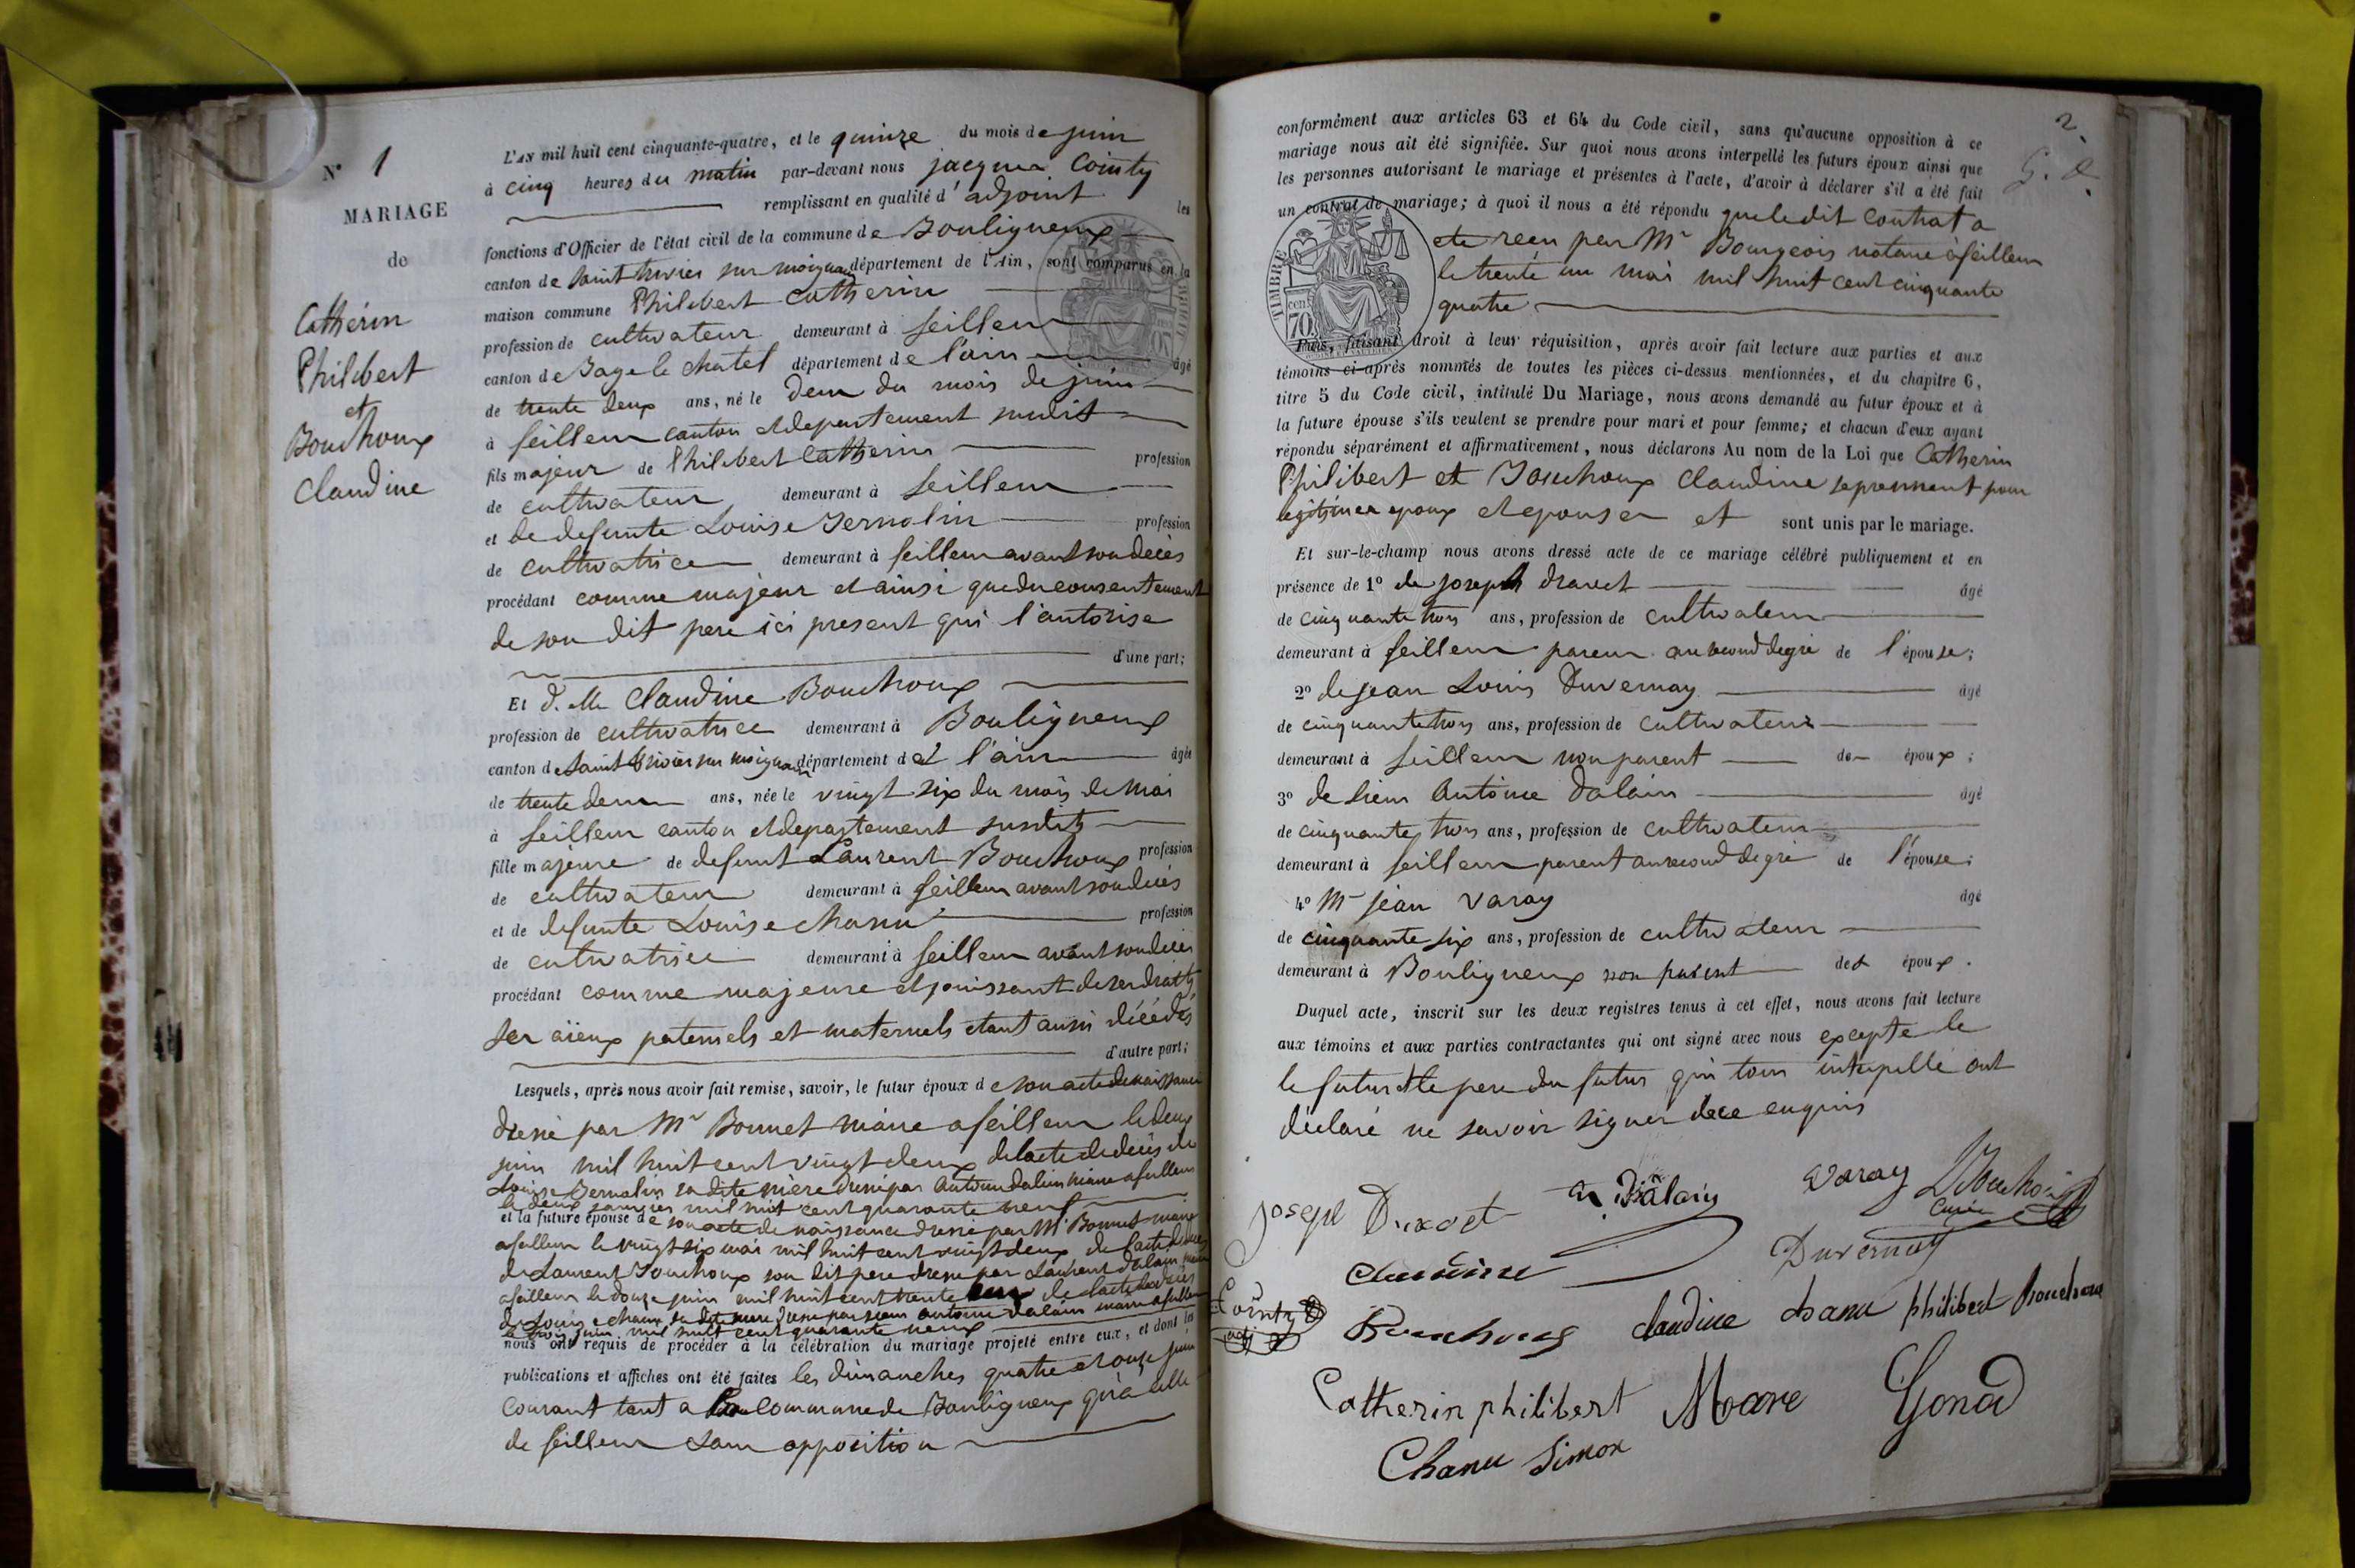 N° 1
MARIAGE
de
Catherin
Philibert
et
Bouchoux
Claudine
L'AN mil huit cent cinquante-quatre, et le quinze du mois de juin
à cinq heures du matin par-devant nous jacques Cointy
remplissant en qualité d'adjoint les
fonctions d'Officier de l'état civil de la commune de Bouligneux
canton de saint trivier sur moignans département de l'Ain, sont comparus en la
maison commune Philibert Catherin
profession de cultivateur demeurant à feillens
canton de Bage le chatel département de l'ain âgé
de trente deux ans, né le deux du mois de juin
à feillens canton et departement susdit
fils majeur de Philibert Catherin profession
de cultivateur demeurant à feillens
et de defunte Louise Bernolin profession
de cultivatrice demeurant à feillens avant son deces
procédant comme majeur et ainsi que du consentement
de son dit pere ici present qui l'autorise
d'une part;
Et d.elle Claudine Bouchoux
profession de cultivatrice demeurant à Bouligneux
canton de Saint trivier sur moignans département de l'ain âgée
de trente deux ans, née le vingt six du mois de mai
à feillens canton et departement susdits
fille majeure de defunt Laurent Bouchoux profession
de cultivateur demeurant à feillens avant son deces
et de defunte Louise chanu profession
de cultivatrice demeurant à feillens avant son deces
procédant comme majeure et jouissant de ses droits
ses aïeux paternels et maternels etant aussi décédés
d'autre part;
Lesquels, après nous avoir fait remise, savoir, le futur époux de son acte de naissance
dressé par Mr Bonnet maire a feillens le deux
juin mil huit cent vingt deux de l'acte de deces de
Louise Bernolin sa dite mère dressé par Antoine dalain maire a feillens
le deux janvier mil huit cent quarante neuf
et la future épouse de son acte de naissance dressé par Mr Bonnet maire
a feillens le vingt six mai mil huit cent vingt deux de l'acte de deces
de Laurent Bouchoux son dit pere dressé par Laurent dalain maire
a feillens le douze juin mil huit cent trente de l'acte de deces
de Louise chanu sa dite mere dressé par sieur antoine dalain maire a feillens
le trois juin mil huit cent quarante neuf
nous ont requis de procéder à la célébration du mariage projeté entre eux, et dont les
publications et affiches ont été faites les dimanches quatre et onze juin
Courant tant a la commune de Bouligneux qu'à celle
de feillens sans opposition
2
G. d.
conformément aux articles 63 et 64 du Code civil, sans qu'aucune opposition à ce
mariage nous ait été signifiée. Sur quoi nous avons interpellé les futurs époux ainsi que
les personnes autorisant le mariage et présentes à l'acte, d'avoir à déclarer s'il a été fait
un contrat de mariage; à quoi il nous a été répondu que le dit contrat a
ete recu par Mr Bourgeois notaire à feillens
le trente un mai mil huit cent cinquante
quatre
TIMBRE
cen
70
Puis, faisant droit à leur réquisition, après avoir fait lecture aux parties et aux
témoins ci-après nommés de toutes les pièces ci-dessus mentionnées, et du chapitre 6,
titre 5 du Code civil, intitulé Du Mariage, nous avons demandé au futur époux et à
la future épouse s'ils veulent se prendre pour mari et pour femme; et chacun d'eux ayant
répondu séparément et affirmativement, nous déclarons Au nom de la Loi que Catherin
Philibert et Bouchoux Claudine se prennent pour
legitimes epoux et epouse et sont unis par le mariage.
Et sur-le-champ nous avons dressé acte de ce mariage célébré publiquement et en
présence de 1° de joseph dravet âgé
de cinquante trois ans, profession de cultivateur
demeurant à feillens parent au second degré de l'épouse;
2° de jean Louis Duvernay âgé
de cinquante trois ans, profession de cultivateur
demeurant à feillens non parent des époux;
3° de sieur Antoine dalain âgé
de cinquante trois ans, profession de cultivateur
demeurant à feillens parent au second degré de l'épouse;
4° Mr jean varay âgé
de cinquante six ans, profession de cultivateur
demeurant à Bouligneux non parent des époux.
Duquel acte, inscrit sur les deux registres tenus à cet effet, nous avons fait lecture
aux témoins et aux parties contractantes qui ont signé avec nous excepte le
le futur et le pere du futur qui tous intepellé ont
déclaré ne savoir signer de ce enquis
Joseph Dravet A. Dalain Varay Bouchoux
Curé
Claudine Duvernay
Cointy
adj
Bouchoux Claudine Chanu philibert Bouchoux
Catherin philibert Mare Gonod
Chanu Simon